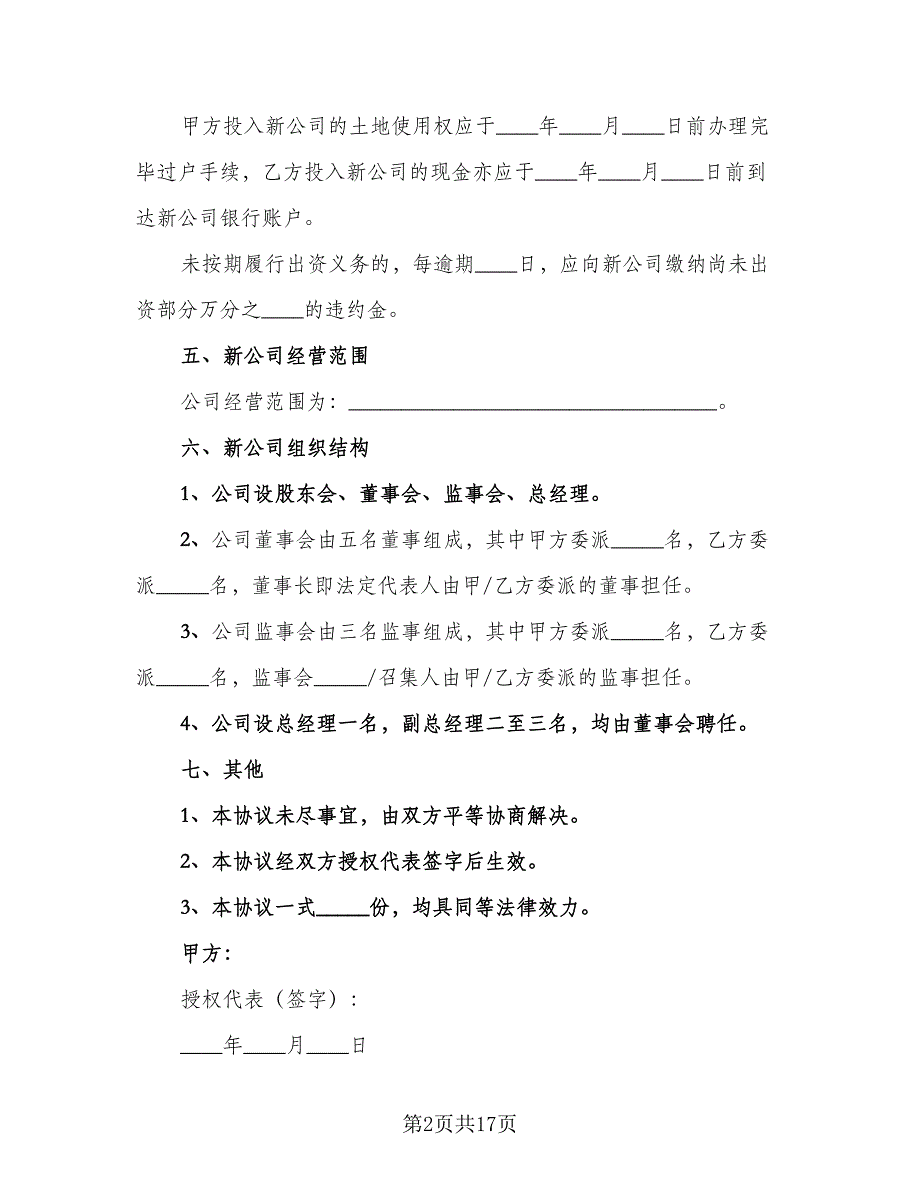 甲方投入新公司的土地使用权应于____年____月____日前办理完
毕过户手续，乙方投入新公司的现金亦应于____年____月____日前到
达新公司银行账户。
未按期履行出资义务的，每逾期____日，应向新公司缴纳尚未出
资部分万分之____的违约金。
五、新公司经营范围
公司经营范围为：___________________________________。
六、新公司组织结构
1、公司设股东会、董事会、监事会、总经理。
2、公司董事会由五名董事组成，其中甲方委派_____名，乙方委
派_____名，董事长即法定代表人由甲/乙方委派的董事担任。
3、公司监事会由三名监事组成，其中甲方委派_____名，乙方委
派_____名，监事会_____/召集人由甲/乙方委派的监事担任。
4、公司设总经理一名，副总经理二至三名，均由董事会聘任。
七、其他
1、本协议未尽事宜，由双方平等协商解决。
2、本协议经双方授权代表签字后生效。
3、本协议一式_____份，均具同等法律效力。
甲方：
授权代表（签字）：
____年____月____日
第2页共17页